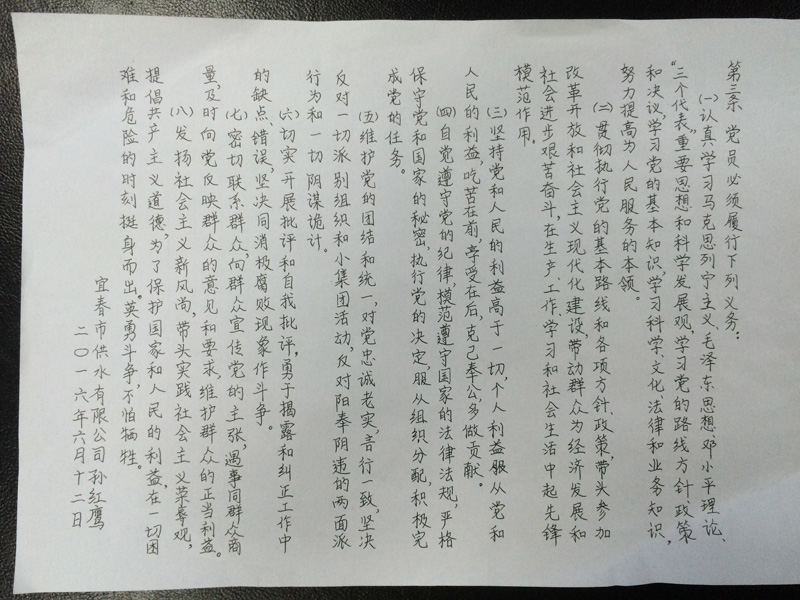 第三条 党员必须履行下列义务：
㈠认真学习马克思列宁主义、毛泽东思想、邓小平理论、
“三个代表”重要思想和科学发展观，学习党的路线方针政策
和决议，学习党的基本知识，学习科学、文化、法律和业务知识，
努力提高为人民服务的本领。
㈡贯彻执行党的基本路线和各项方针、政策，带头参加
改革开放和社会主义现代化建设，带动群众为经济发展和
社会进步艰苦奋斗，在生产、工作、学习和社会生活中起先锋
模范作用。
㈢坚持党和人民的利益高于一切，个人利益服从党和
人民的利益，吃苦在前，享受在后，克己奉公，多做贡献。
㈣自觉遵守党的纪律，模范遵守国家的法律法规，严格
保守党和国家的秘密，执行党的决定，服从组织分配，积极完
成党的任务。
㈤维护党的团结和统一，对党忠诚老实，言行一致，坚决
反对一切派别组织和小集团活动，反对阳奉阴违的两面派
行为和一切阴谋诡计。
㈥切实开展批评和自我批评，勇于揭露和纠正工作中
的缺点、错误，坚决同消极腐败现象作斗争。
㈦密切联系群众，向群众宣传党的主张，遇事同群众商
量，及时向党反映群众的意见和要求，维护群众的正当利益。
㈧发扬社会主义新风尚，带头实践社会主义荣辱观，
提倡共产主义道德，为了保护国家和人民的利益，在一切困
难和危险的时刻挺身而出，英勇斗争，不怕牺牲。
宜春市供水有限公司 孙红鹰
二〇一六年六月十二日